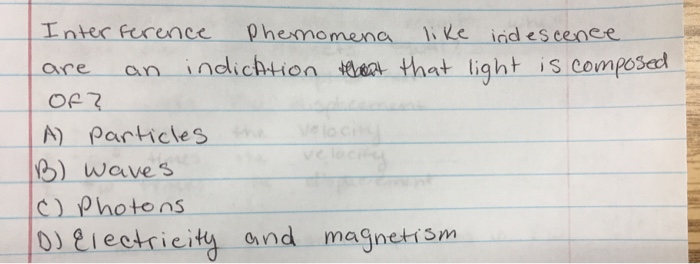 Interference phenomena like iridescence
are an indication that light is composed
OF?
A) particles
B) waves
C) photons
D) Electricity and magnetism